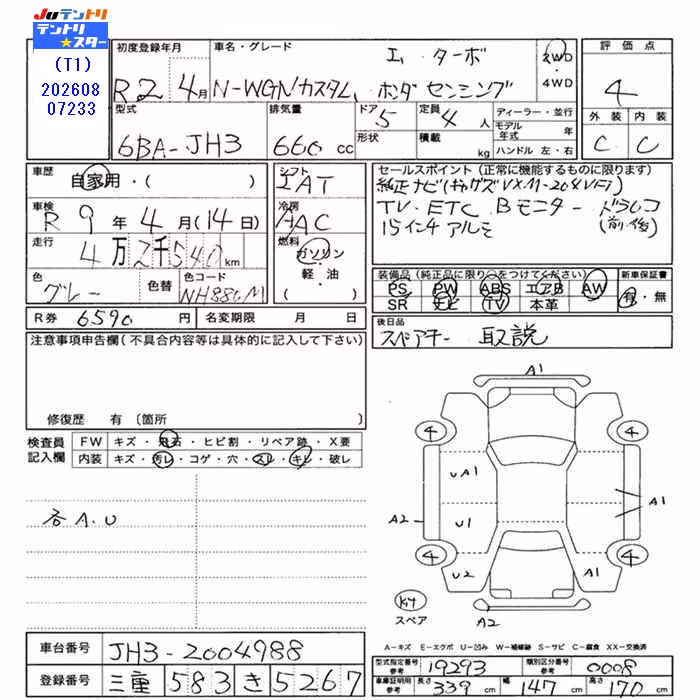 JUテントリ
テントリ★スター
(T1)
202608
07233
初度登録年月
車名・グレード
評価点
R2 4月
N-WGNカスタム
L・ターボ
ホンダセンシング
2WD・4WD
4
外装 内装
C C
型式
6BA-JH3
排気量
660 cc
ドア
5
形状
定員
4 人
積載
kg
ディーラー・並行
モデル年式 年
ハンドル 左・右
車歴
自家用・( )
シフト
IAT
車検
R 9 年 4 月(14日)
冷房
AAC
走行
4万2千540 km
燃料
ガソリン・軽・油
色
グレー
色替
色コード
NH880M
R券 6590 円
名変期限 月 日
セールスポイント(正常に機能するものに限ります)
純正ナビ(ギャザズVXM-208VFi)
TV・ETC Bモニター ドラレコ(前後)
15インチアルミ
装備品(純正品に限り○をつけてください)
新車保証書
PS PW ABS エアB AW
SR ナビ TV 本革
有・無
後日品
スペアキー 取説
注意事項申告欄(不具合内容等は具体的に記入して下さい)
修復歴 有 〔箇所 〕
検査員記入欄
FW キズ・飛石・ヒビ割・リペア跡・X要
内装 キズ・汚レ・コゲ・穴・スレ・キレ・破レ
各A.U
A1
4 4
UA1
A2
U1
A1
4 4
U2
A1
A2
スペア
A-キズ E-エクボ U-凹み W-補修跡 S-サビ C-腐食 XX-交換済
車台番号
JH3-2004988
登録番号
三重 583 き 5267
型式指定番号 参考
19293
類別区分番号 参考
0008
車庫証明用 参考
長さ 339 cm
幅 147 cm
高さ 170 cm